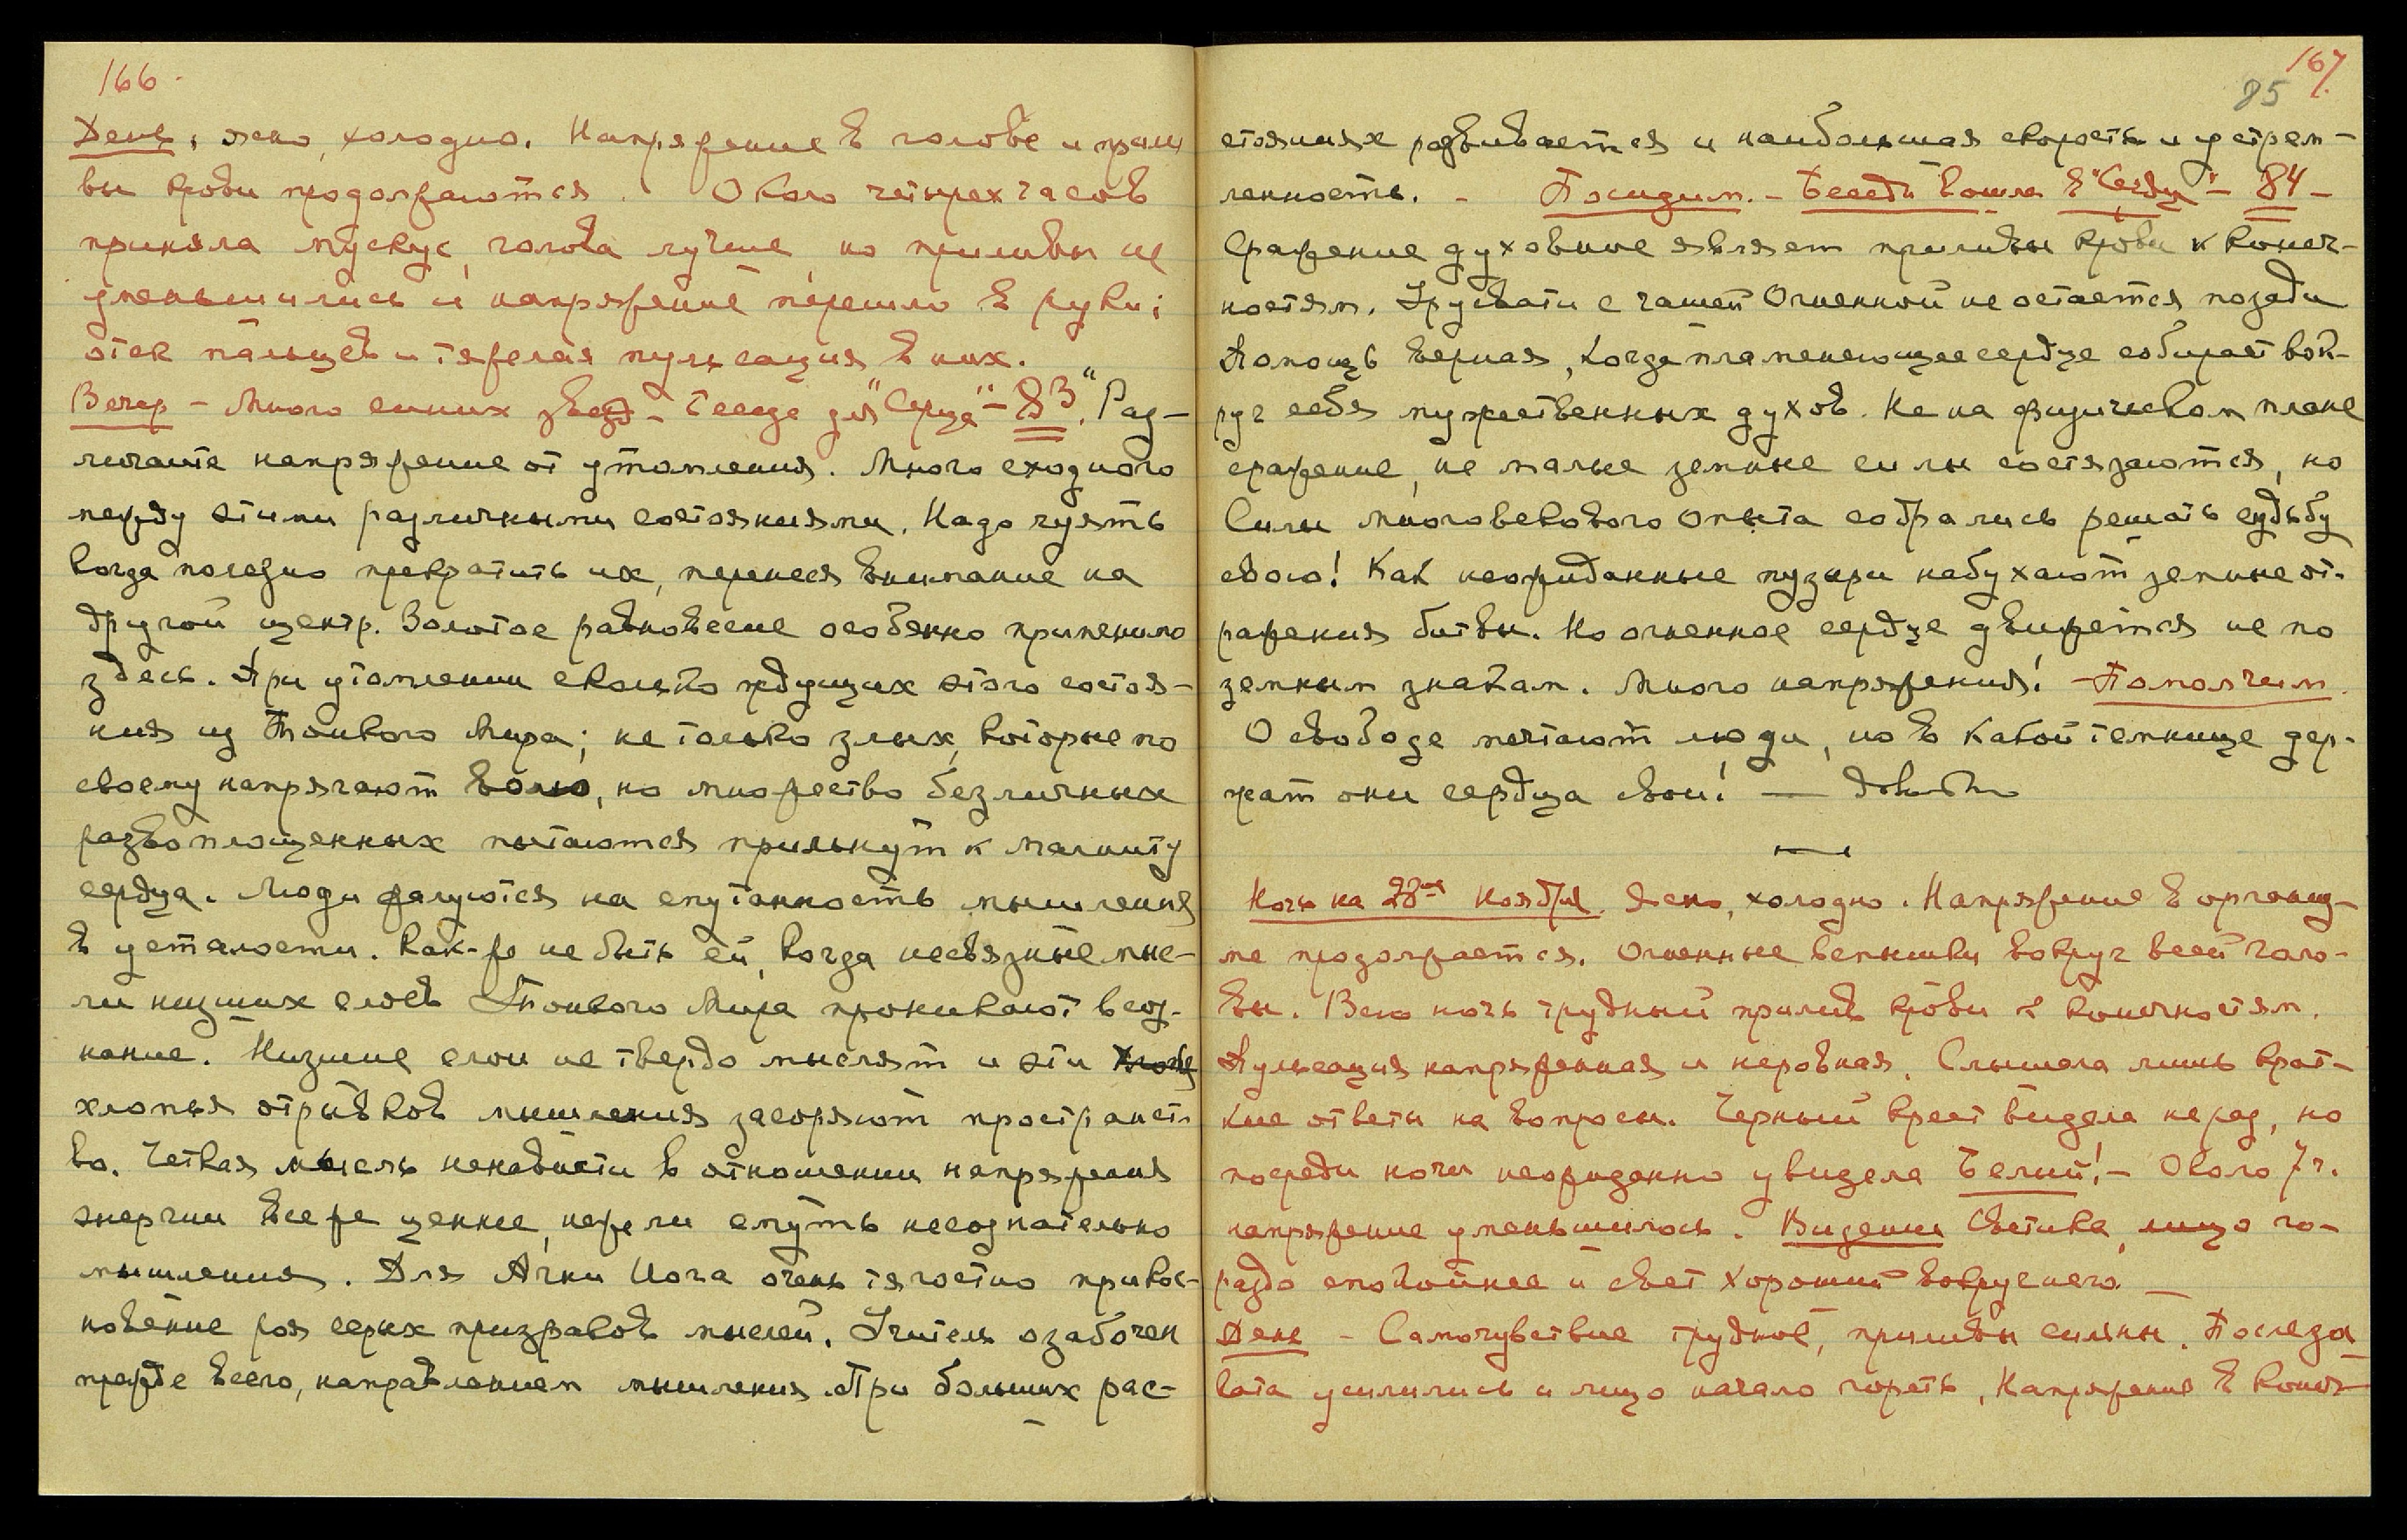 166.
День, ясно, холодно. Напряжение в голове и прили
вы крови продолжаются. Около четырех часов
приняла мускус, голова лучше, но приливы не
уменьшились и напряжение перешло в руки;
отек пальцев и тяжелая пульсация в них.
Вечер – Много синих звезд – Беседа для "Сердца" – 83. "Раз-
личайте напряжение от утомления. Много сходного
между этими различными состояниями. Надо чуять
когда полезно прекратить их, перенеся внимание на
другой центр. Золотое равновесие особенно применимо
здесь. При утомлении сколько ждущих этого состоя-
ния из Тонкого Мира; не только злых, которые по
своему напрягают волю, но множество безличных
развоплощенных пытаются прильнуть к магниту
сердца. Люди жалуются на спутанность мышления
в усталости. Как-же не быть ей, когда несвязные мыс-
ли низших слоев Тонкого Мира проникают в соз-
нание. Низшие слои не твердо мыслят и эти
хлопья отрывков мышления засоряют пространст-
во. Четкая мысль ненависти в отношении напряжения
энергии все же ценнее, нежели смуть несознательно
мышления. Для Агни Йога очень тягостно прикос-
новение роя серых призраков мыслей. Учитель озабочен
прежде всего, направлением мышления. При больших рас-
167.
85
стояниях развивается и наибольшая скорость и устрем-
ленность. – Посидим. – Беседа вошла в "Сердце" – 84 –
Сражение духовное являет приливы крови к конеч-
ностям. Урусвати с чашей Огненной не остается позади
Помощь верная, когда пламенеющее сердце собирает вок-
руг себя мужественных духов. Не на физическом плане
сражение, не малые земные силы состязаются, но
Силы многовекового опыта собрались решать судьбу
свою! Как неожиданные пузыри набухают земные от-
ражения битвы. Но огненное сердце движется не по
земным знакам. Много напряжения! – Помолчим.
О свободе мечтают люди, но в какой темнице дер-
жат они сердца свои! — Довольно
—
Ночь на 28ое Ноября. Ясно, холодно. Напряжение в организ-
ме продолжается. Огненные вспышки вокруг всей голо-
вы. Всю ночь трудный прилив крови к конечностям.
Пульсация напряженная и неровная. Слышала лишь крат-
кие ответы на вопросы. Черный крест видела перед, но
посреди ночи неожиданно увидела Белый! – Около 7 ч.
напряжение уменьшилось. Видение Светика, лицо го-
раздо спокойнее и свет хороший вокруг него. —
День – Самочувствие трудное, приливы сильны. После за
ката усилились и лицо начало гореть. Напряжение в конеч-